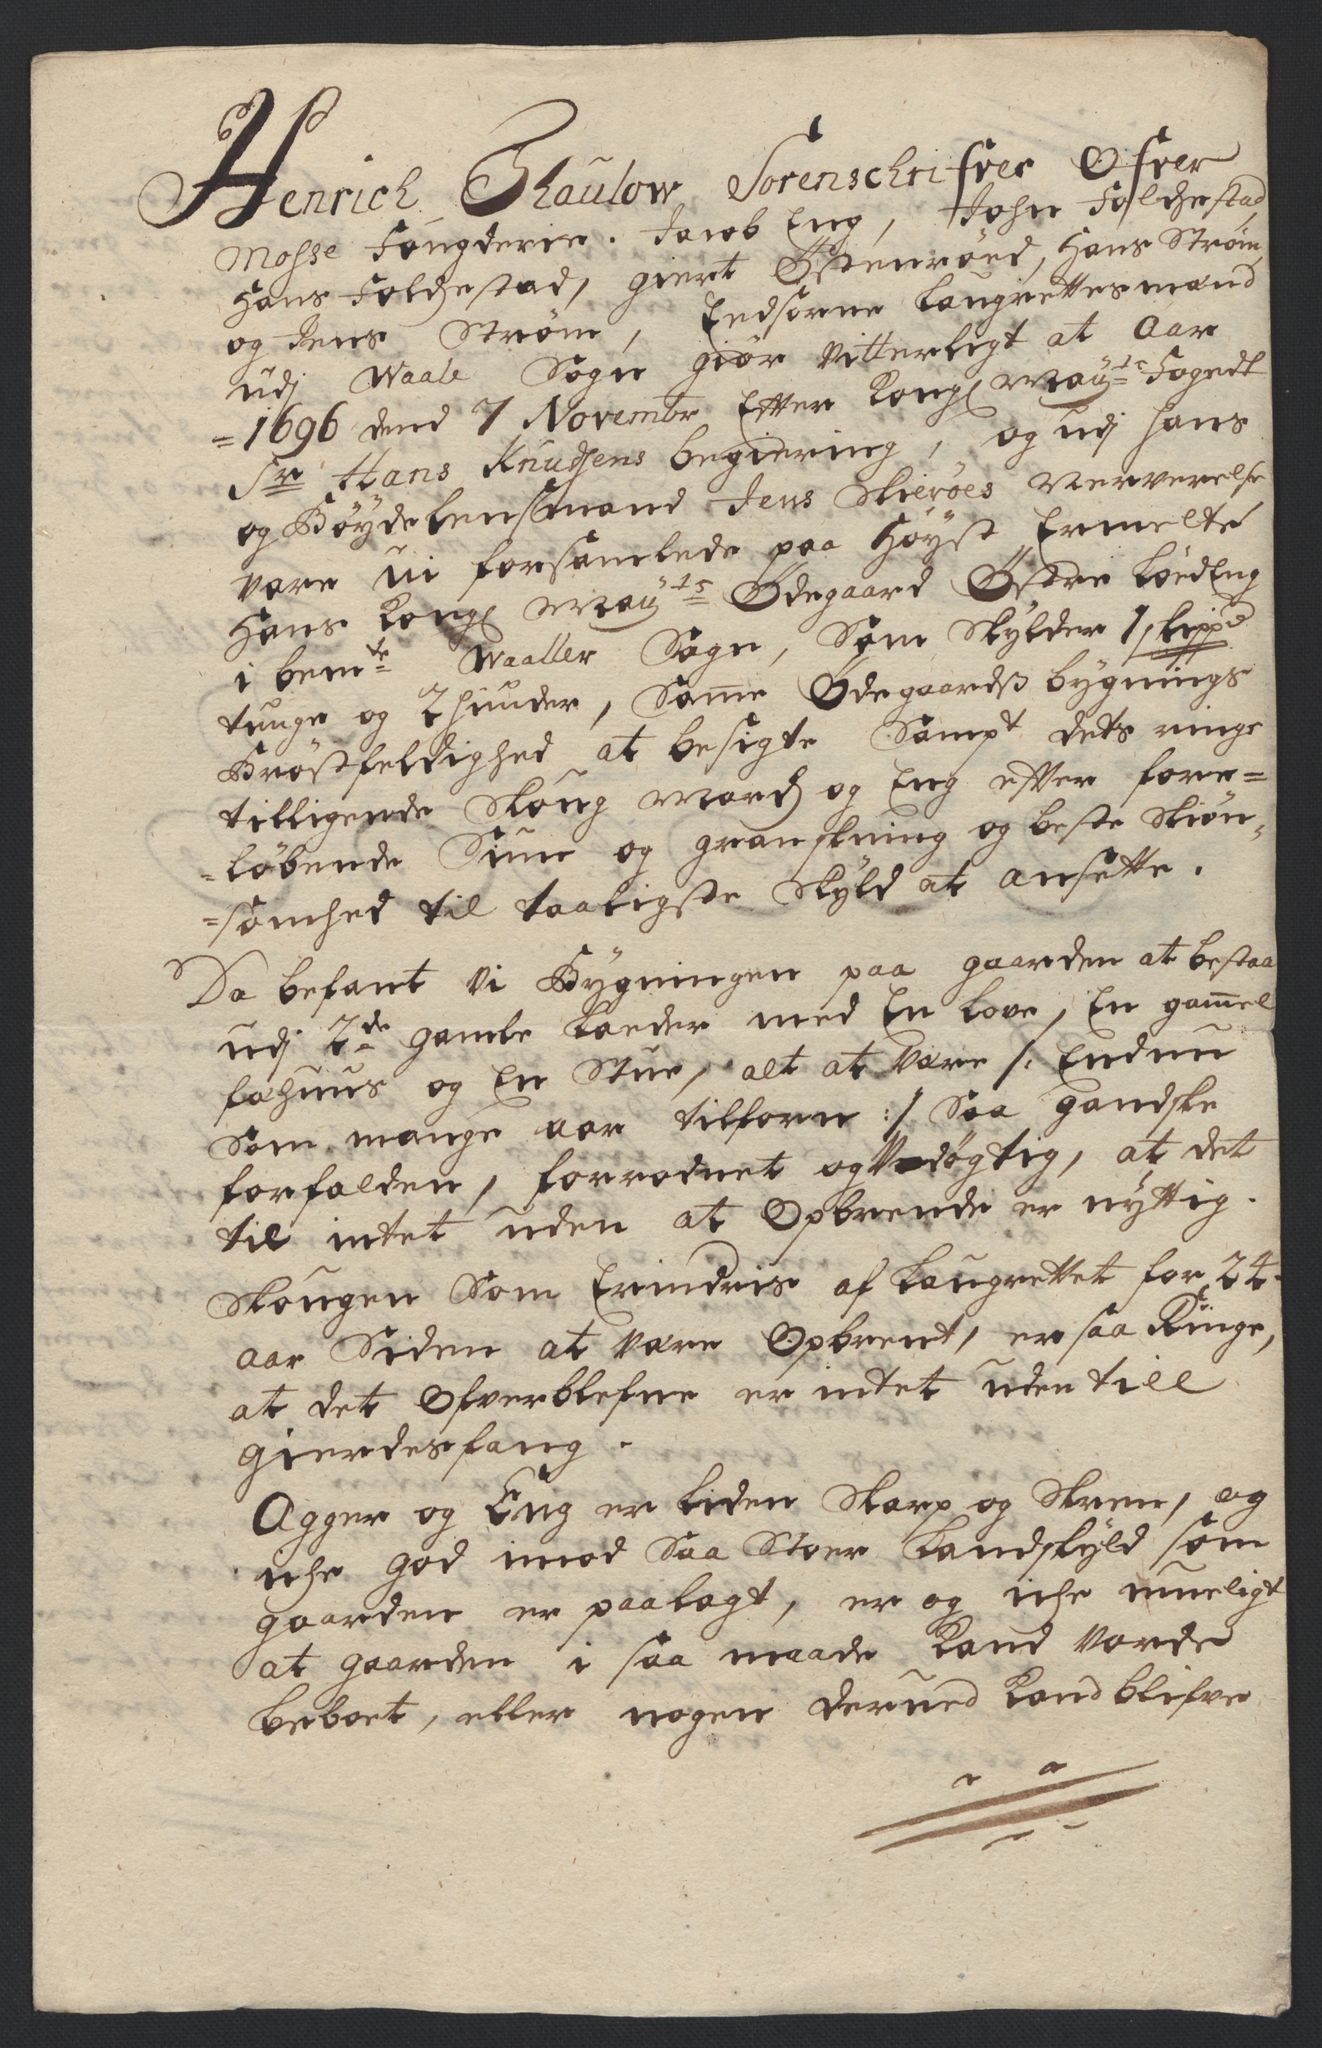 Henrich Thaulow Sorenschrifver Ofver
Mosse Fougderie. Jacob Eng, John Folchestad,
Hans Folchestad, Giert Østenrøed, Hans Strøm,
og Jens Strøm, Eedsorne Laugrettesmænd
udj Waale Sogn giør vitterligt at Aar
=1696 dend 7 Novembr Efter Kongl Mayts Fogedt
Sr Hans Knudsens begiering, og udj hans
og Bøydelensmand Jens Skierøes nerverelse
vare vi forsamlede paa Høyst Ermelte
Hans Kongl Mayts Ødegaard Østre Løedeng
i bemte Waaller Sogn, Som Skylder 1 skippd
tunge og 2 huuder, Samme Ødegaardß bygnings
Brøstfeldighed at besigte Sampt dets ringe
tilligende Skoug March og Eng efter fore=
=løbende Siun og granskning og beste Skiøn=
=somhed til taaligste Skyld at ansette.
Da befant vi Bygningen paa gaarden at bestaa
udj 2de gamle Laeder med En Love, En gammel
fæhuus og En Stue, alt at være /: Endnu
Som mange aar tilforn :/ Saa gandske
forfalden, forrodnet og Vdøgtig, at det
til intet uden at Opbrende er nyttig.
Skougen Som Erindris af Laugrettet for 24
aar Siden at være Opbrent, er saa Ringe,
at det Ofverblefne er intet uden till
gierdesfang.
Agger og Eng er liden Skarp og Skren, og
iche god imod Saa Stoer Landskyld som
gaarden er paalagt, er og iche mueligt
at gaarden i saa maade kand vorde
beboet, eller nogen derued kand blifve